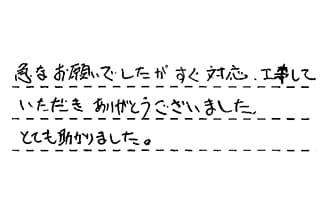 急なお願いでしたがすぐ対応、工事して
いただきありがとうございました。
とても助かりました。